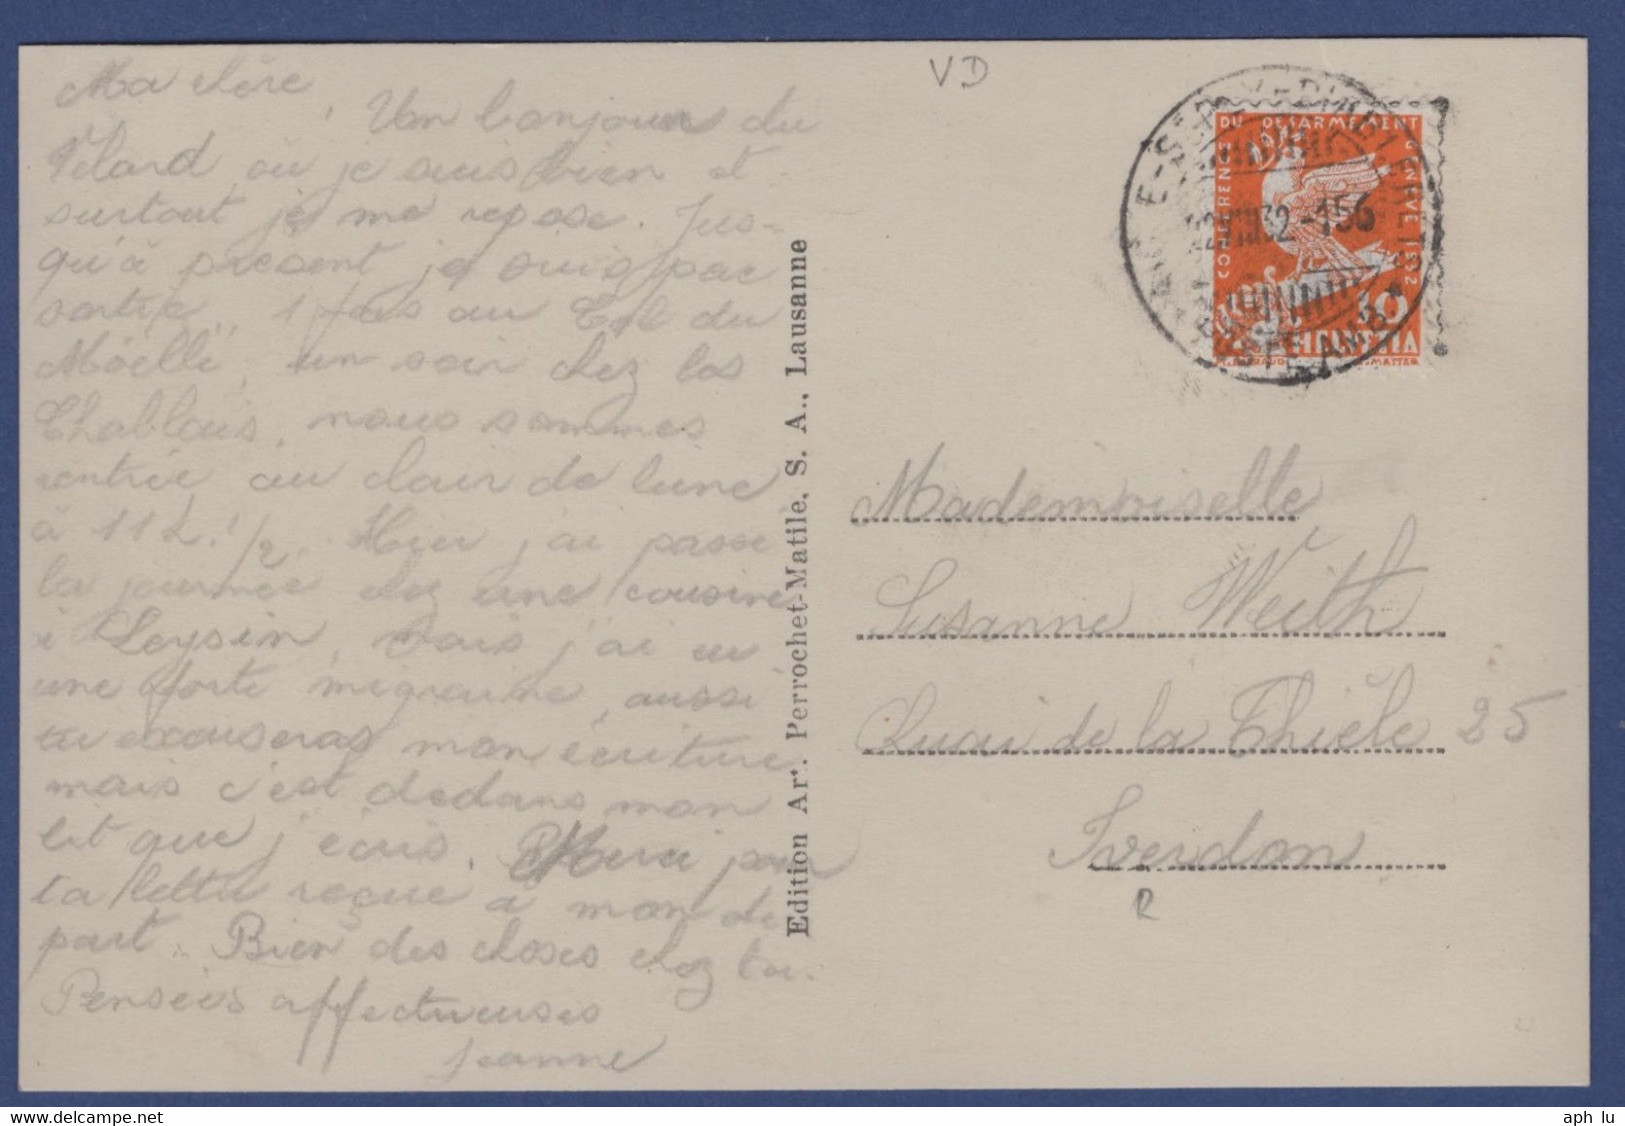 Ma chère,
Un bonjour du
Velard où je suis bien et
surtout je me repose. Jus-
qu'à présent je suis pas
sortie, 1 fois au Col du
Möellé, un soir chez les
Chablais, nous sommes
rentrée au clair de lune
à 11 h. 1/2. Hier j'ai passé
la journée chez une cousine
à Leysin, mais j'ai eu
une forte migraine, aussi
tu excuseras mon écriture
mais c'est dedans mon
lit que j'écris. Merci pour
ta lettre reçue à mon dé
part. Bien des choses chez toi.
Pensées affectueuses
Jeanne
Edition Art. Perrochet-Matile, S. A., Lausanne
VD
CONFERENCE DU DESARMEMENT GENEVE 1932
10
HELVETIA
VIII 32 - 156
Mademoiselle
Susanne Weith
Quai de la Thièle 25
Yverdon
R
www.delcampe.net
aph lu